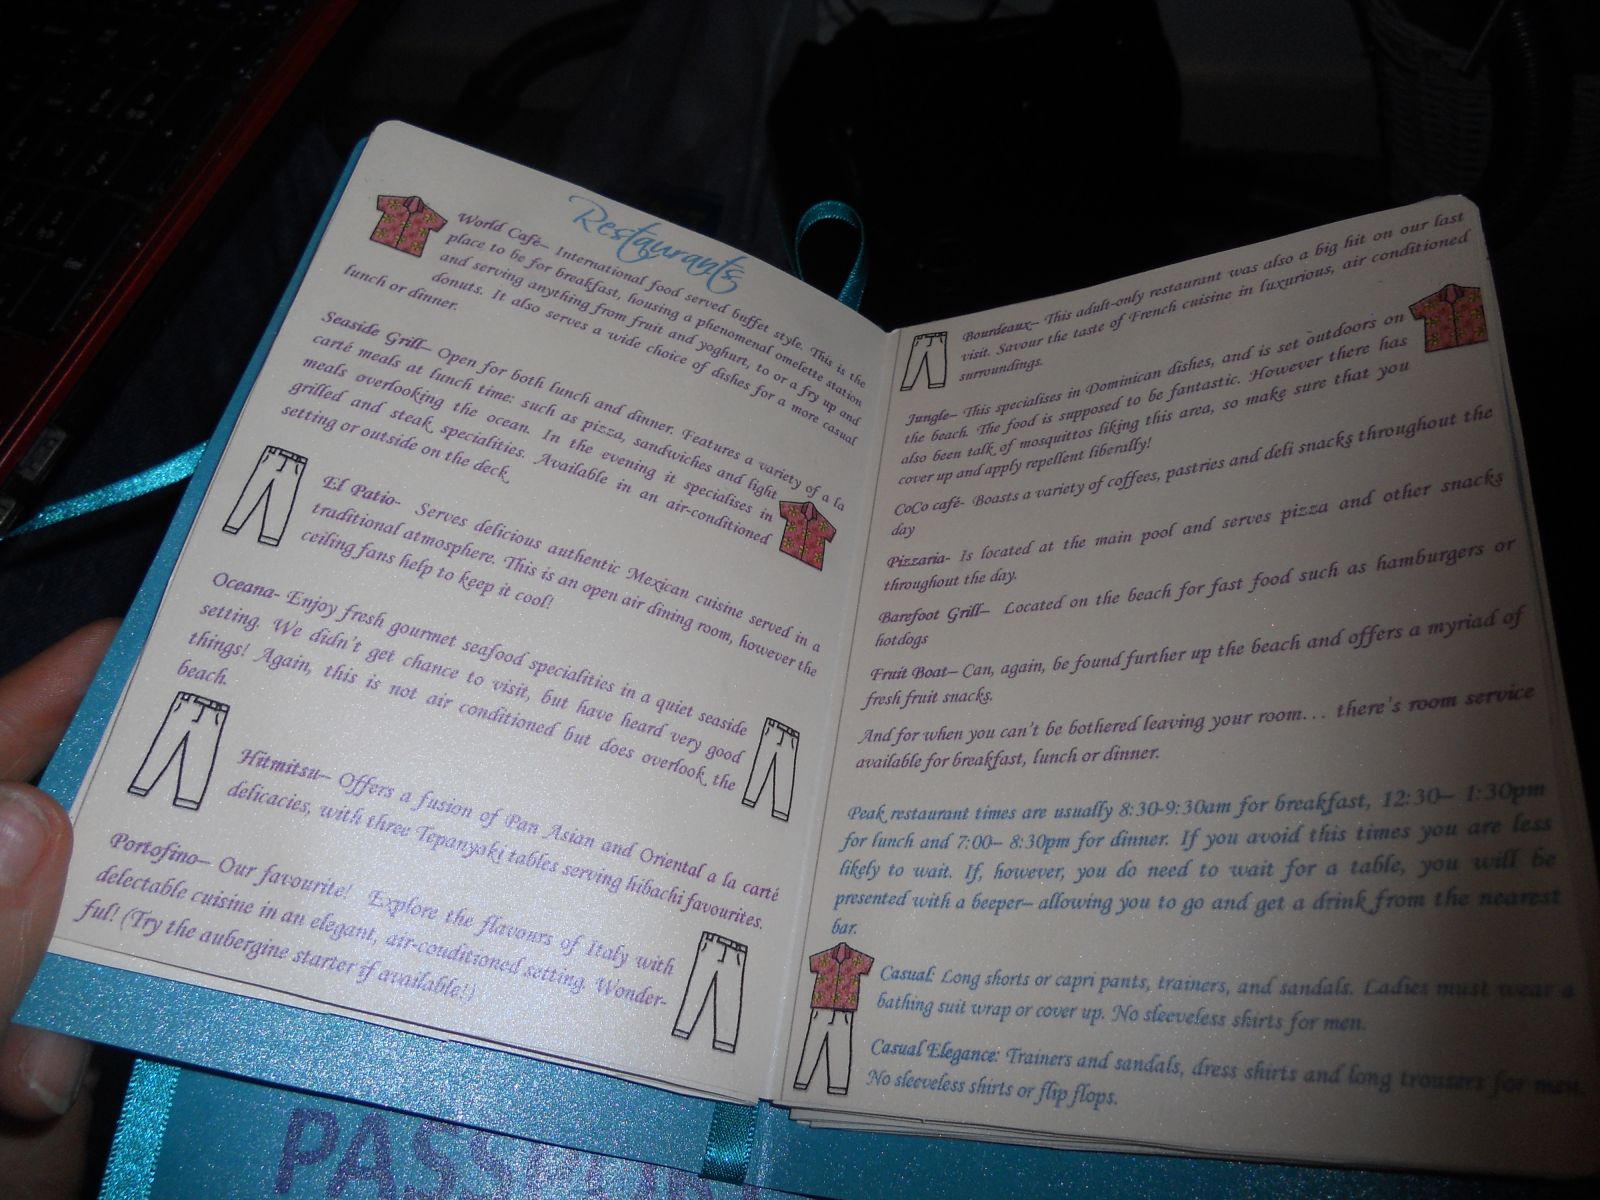 Restaurants
World Café– International food served buffet style. This is the
place to be for breakfast, housing a phenomenal omelette station
and serving anything from fruit and yoghurt, to or a fry up and
donuts. It also serves a wide choice of dishes for a more casual
lunch or dinner.
Seaside Grill– Open for both lunch and dinner. Features a variety of a la
carté meals at lunch time; such as pizza, sandwiches and light
meals overlooking the ocean. In the evening it specialises in
grilled and steak specialities. Available in an air-conditioned
setting or outside on the deck
El Patio- Serves delicious authentic Mexican cuisine served in a
traditional atmosphere. This is an open air dining room, however the
ceiling fans help to keep it cool!
Oceana- Enjoy fresh gourmet seafood specialities in a quiet seaside
setting. We didn't get chance to visit, but have heard very good
things! Again, this is not air conditioned but does overlook the
beach.
Hitmitsu– Offers a fusion of Pan Asian and Oriental a la carté
delicacies, with three Tepanyaki tables serving hibachi favourites.
Portofino– Our favourite! Explore the flavours of Italy with
delectable cuisine in an elegant, air-conditioned setting. Wonder-
ful! (Try the aubergine starter if available!)
Bourdeaux– This adult-only restaurant was also a big hit on our last
visit. Savour the taste of French cuisine in luxurious, air conditioned
surroundings.
Jungle– This specialises in Dominican dishes, and is set outdoors on
the beach. The food is supposed to be fantastic. However there has
also been talk of mosquittos liking this area, so make sure that you
cover up and apply repellent liberally!
CoCo café- Boasts a variety of coffees, pastries and deli snacks throughout the
day
Pizzaria- Is located at the main pool and serves pizza and other snacks
throughout the day.
Barefoot Grill– Located on the beach for fast food such as hamburgers or
hotdogs
Fruit Boat– Can, again, be found further up the beach and offers a myriad of
fresh fruit snacks.
And for when you can't be bothered leaving your room... there's room service
available for breakfast, lunch or dinner.
Peak restaurant times are usually 8:30-9:30am for breakfast, 12:30– 1:30pm
for lunch and 7:00– 8:30pm for dinner. If you avoid this times you are less
likely to wait. If, however, you do need to wait for a table, you will be
presented with a beeper– allowing you to go and get a drink from the nearest
bar.
Casual: Long shorts or capri pants, trainers, and sandals. Ladies must wear a
bathing suit wrap or cover up. No sleeveless shirts for men.
Casual Elegance: Trainers and sandals, dress shirts and long trousers for men.
No sleeveless shirts or flip flops.
PASSPORT